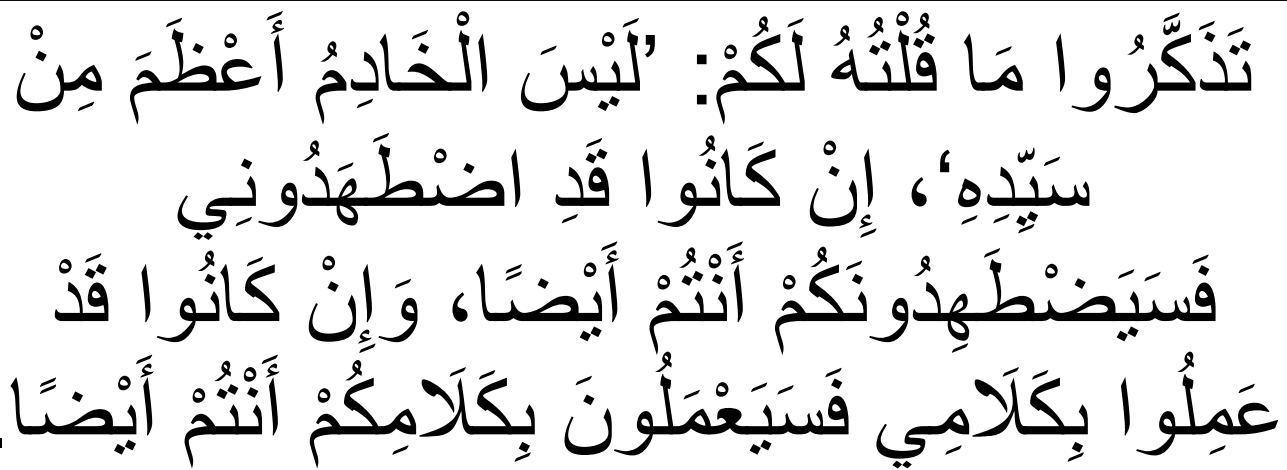 تَذَكَّرُوا مَا قُلْتُهُ لَكُمْ: ’لَيْسَ الْخَادِمُ أَعْظَمَ مِنْ
سَيِّدِهِ‘، إِنْ كَانُوا قَدِ اضْطَهَدُونِي
فَسَيَضْطَهِدُونَكُمْ أَنْتُمْ أَيْضًا، وَإِنْ كَانُوا قَدْ
عَمِلُوا بِكَلَامِي فَسَيَعْمَلُونَ بِكَلَامِكُمْ أَنْتُمْ أَيْضًا.